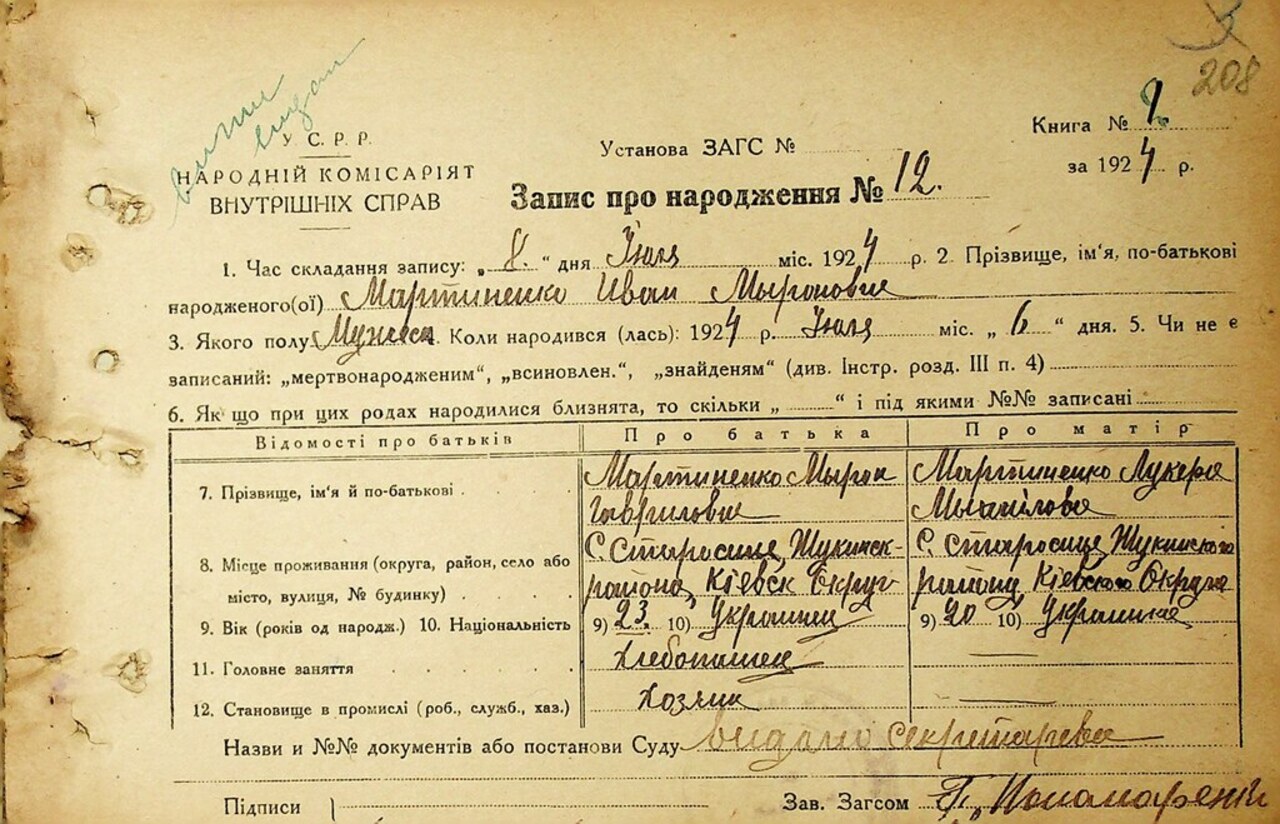 208
У. С. Р. Р.
НАРОДНІЙ КОМІСАРІЯТ
ВНУТРІШНІХ СПРАВ
Установа ЗАГС №
Книга №
за 1924 р.
Запис про народження № 12.
1. Час складання запису: „ 8. “ дня Июля міс. 1924 р. 2. Прізвище, ім'я, по-батькові
народженого(ої) Мартиненко Иван Мыронович
3. Якого полу Мужеск. Коли народився (лась): 1924 р. Июля міс. „ 6 “ дня. 5. Чи не є
записаний: „мертвонародженим“, „всиновлен.“, „знайденям“ (див. Інстр. розд. III п. 4)
6. Як що при цих родах народилися близнята, то скільки „ “ і під якими №№ записані
Відомості про батьків Про батька Про матір
7. Прізвище, ім'я й по-батькові Мартиненко Мырон Мартиненко Лукеря
Гаврилович
8. Місце проживання (округа, район, село або С. Старосілле, Жукинск- С. Старосілле, Жукинского
місто, вулиця, № будинку) району, Кіевск Округ району Кіевского Округа
9. Вік (років од народж.) 10. Національність 9) 23. 10) Украинец 9) 20 10) Украинка
11. Головне заняття Хлебопашец
12. Становище в промислі (роб., служб., хаз.) Хозяин
Назви и №№ документів або постанови Суду
Підписи Зав. Загсом Пономаренко